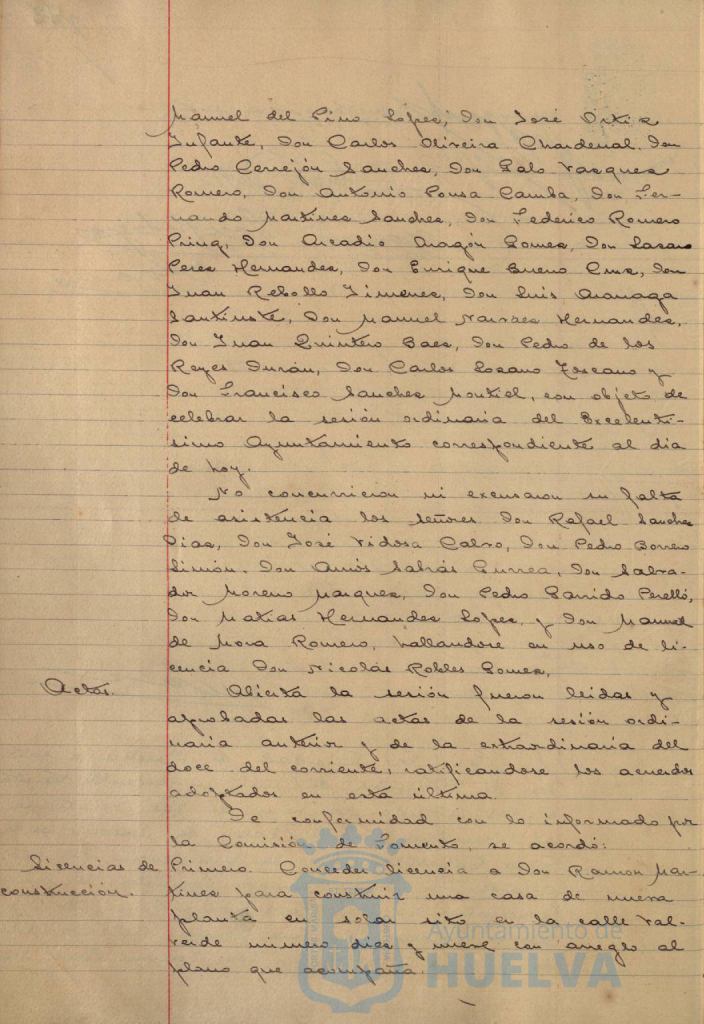 Manuel del Pino López, Don José Ortiz
Infante, Don Carlos Oliveira Chardenal, Don
Pedro Cerrejón Sanchez, Don Galo Vazquez
Romero, Don Antonio Pousa Camba, Don Fer-
nando Martinez Sanchez, Don Federico Romero
Don Arcadio Aragón Gomez, Don Lazaro
Perez Hernandez, Don Enrique Bueno Cruz, Don
Juan Rebollo Jimenez, Don Luis
Don Manuel Narvaez Hernandez,
Don Juan Quintero Baez, Don Pedro de los
Reyes Durán, Don Carlos Lozano Toscano y
Don Francisco Sanchez Montiel, con objeto de
celebrar la sesión ordinaria del Excelentí-
simo Ayuntamiento correspondiente al dia
de hoy.
No concurrieron ni excusaron su falta
de asistencia los señores Don Rafael Sanchez
Diaz, Don José Vidosa Calvo, Don Pedro Borrero
Limón, Don Amós Sabrás Gurrea, Don Salva-
dor Moreno Marquez, Don Pedro Garrido Perelló,
Don Matias Hernandez López, y Don Manuel
de Mora Romero, hallandose en uso de li-
cencia Don Nicolás Robles Gomez,
Actas.
Abierta la sesión fueron leidas y
aprobadas las actas de la sesión ordi-
naria anterior y de la extraordinaria del
doce del corriente, ratificandose los acuerdos
adoptados en esta última.
De conformidad con lo informado por
la Comisión de Fomento, se acordó:
Licencias de
construcción.
Primero. Conceder licencia a Don Ramon Mar-
tinez para construir una casa de nueva
planta en solar sito en la calle Val-
verde número diez y nueve con arreglo al
plano que acompaña.
Ayuntamiento de
HUELVA